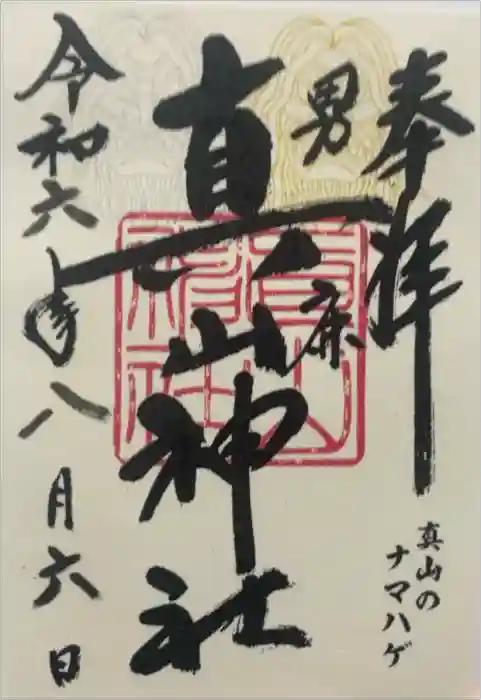 奉拝
男鹿
真山神社
令和六年八月六日
真山の
ナマハゲ
真山神社